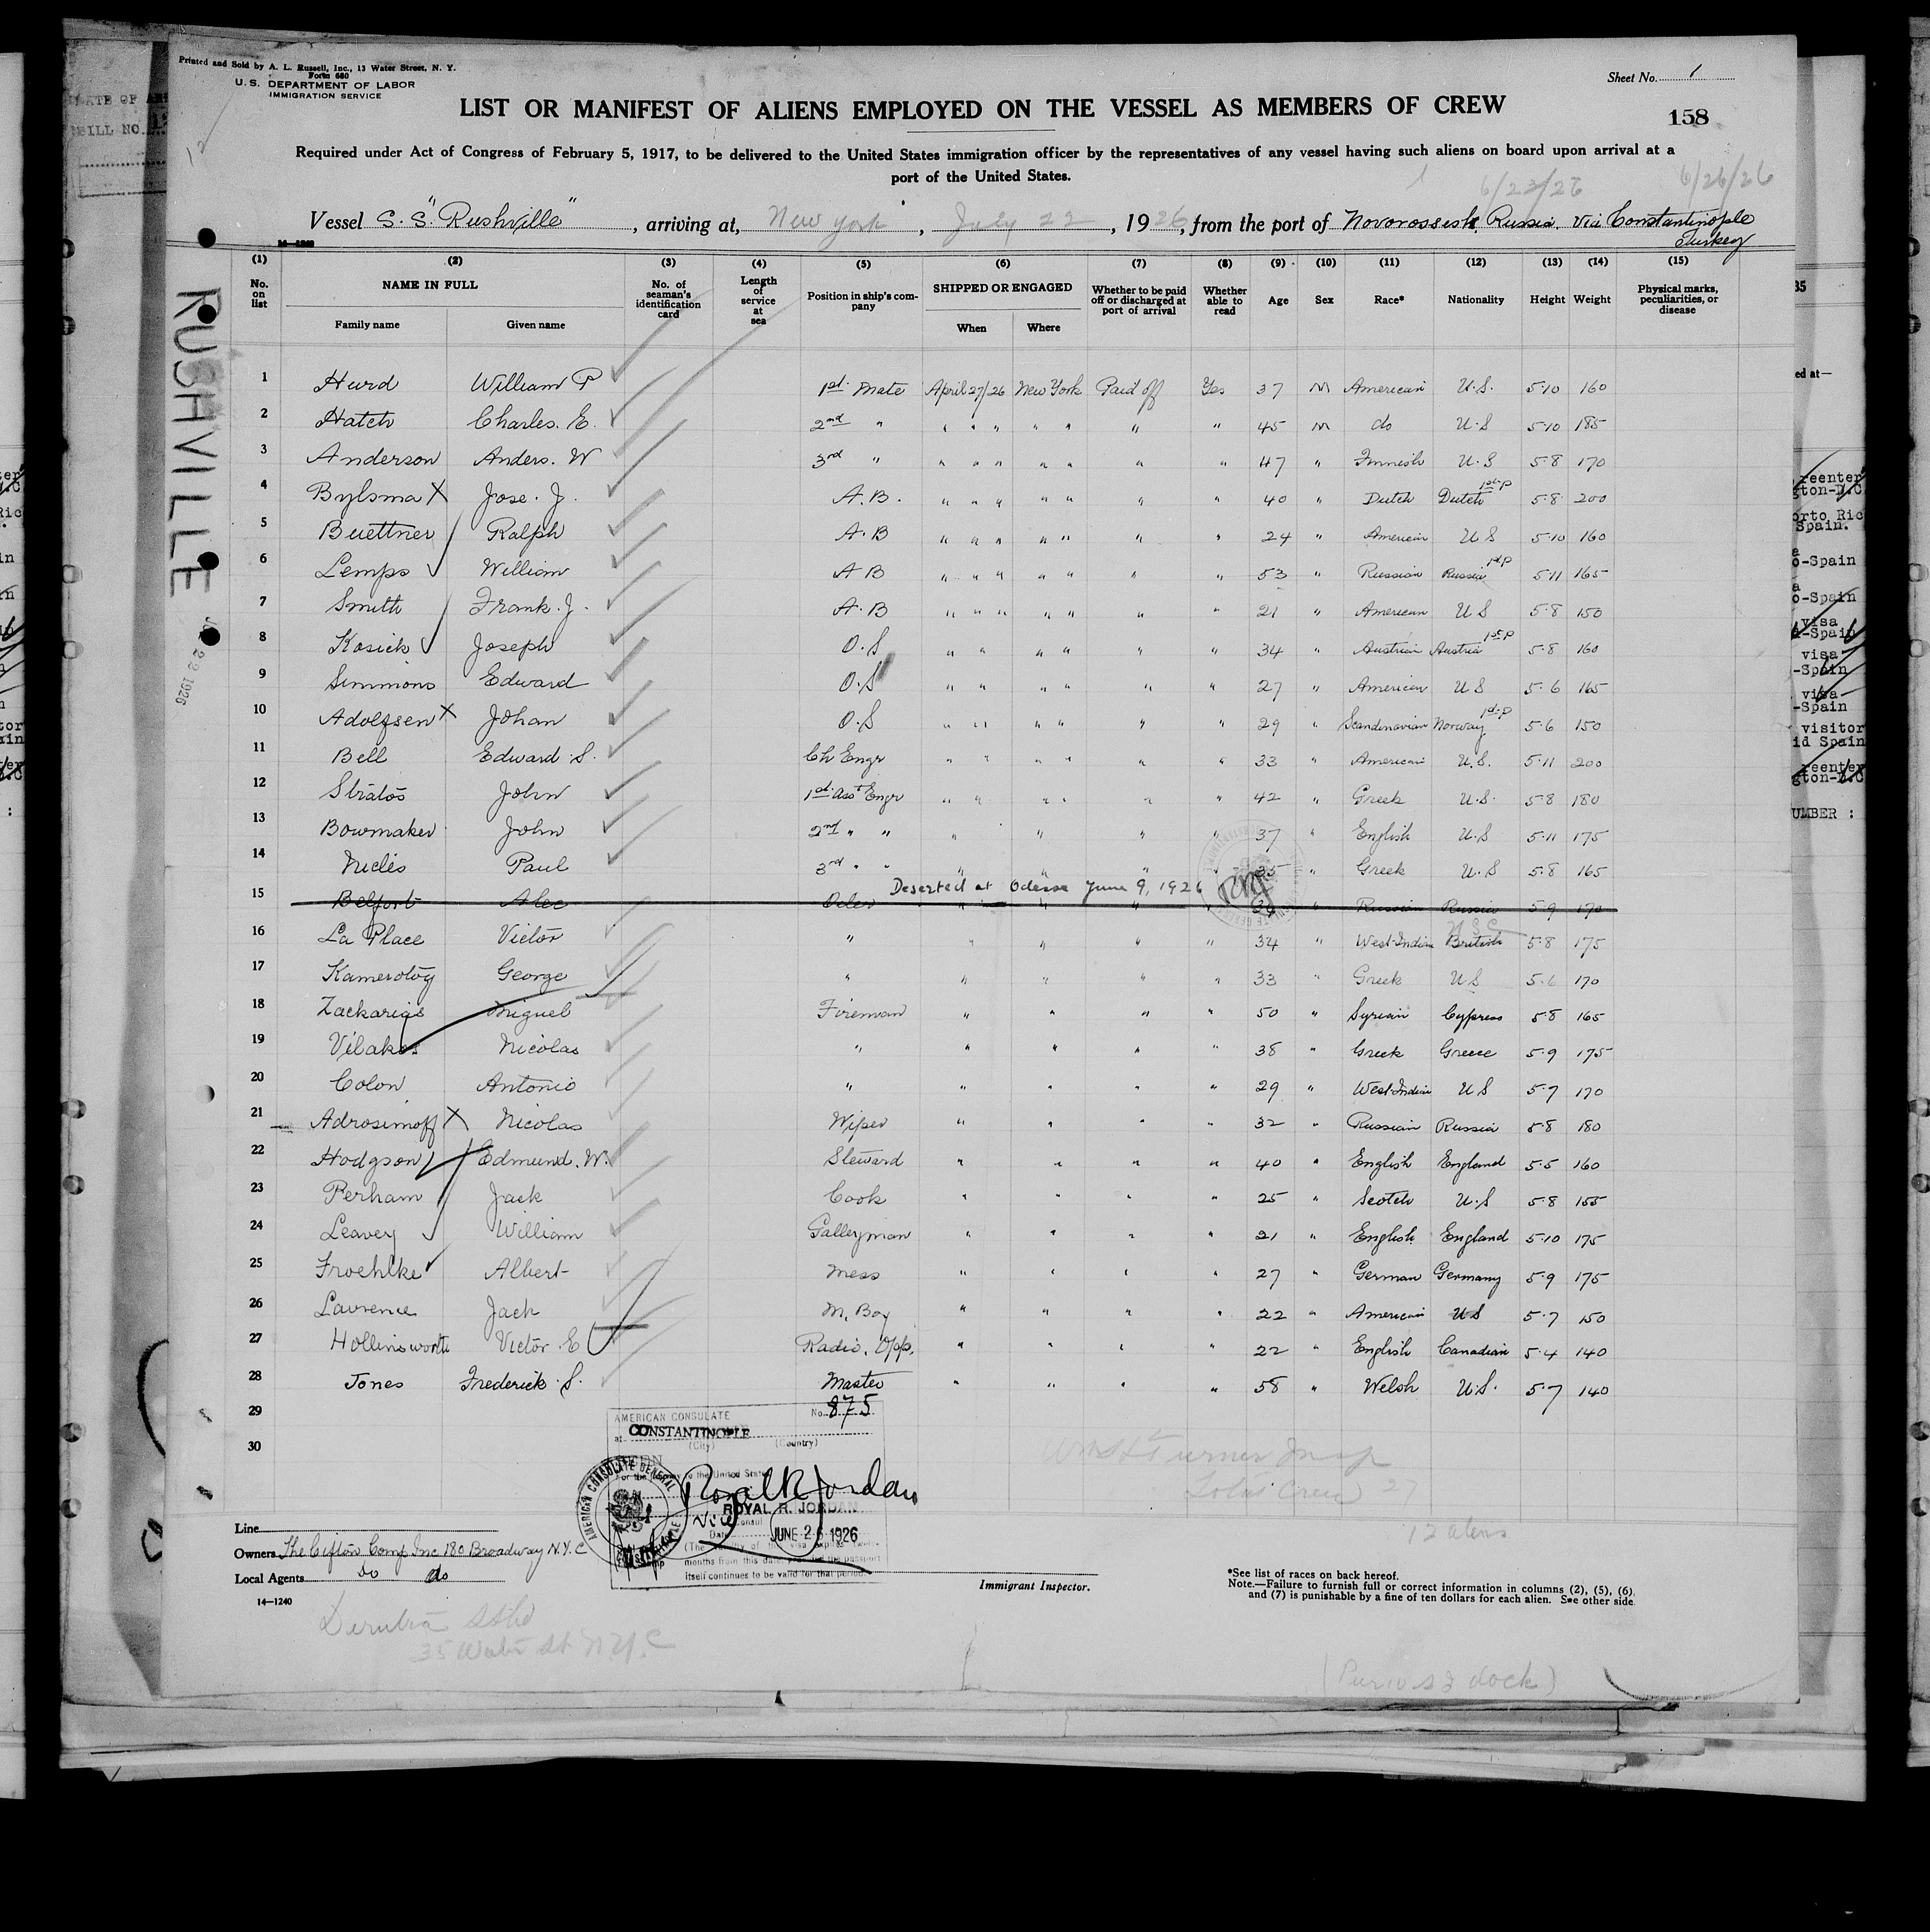 Printed and Sold by A. L. Russell, Inc., 13 Water Street, N. Y.
Form 680
U. S. DEPARTMENT OF LABOR
IMMIGRATION SERVICE
Sheet No. 1
LIST OR MANIFEST OF ALIENS EMPLOYED ON THE VESSEL AS MEMBERS OF CREW
158
Required under Act of Congress of February 5, 1917, to be delivered to the United States immigration officer by the representatives of any vessel having such aliens on board upon arrival at a
port of the United States.
6/23/26 6/26/26
Vessel S.S. "Rushville", arriving at, New York, July 22, 1926, from the port of Novorossisk, Russia. Via Constantinople
Turkey
RUSHVILLE
(1) (2) (3) (4) (5) (6) (7) (8) (9) (10) (11) (12) (13) (14) (15)
No. on list NAME IN FULL Family name Given name No. of seaman's identification card Length of service at sea Position in ship's company SHIPPED OR ENGAGED When Where Whether to be paid off or discharged at port of arrival Whether able to read Age Sex Race* Nationality Height Weight Physical marks, peculiarities, or disease
1 Hurd William P 1st Mate April 27/26 New York Paid off Yes 37 M American U.S. 5·10 160
2 Hatch Charles. E. 2nd " " " " " " " " 45 M do U.S 5·10 185
3 Anderson Anders. W 3rd " " " " " " " " 47 " Finnish U.S 5·8 170
4 Bylsma X Jose. J. A.B. " " " " " " " 40 " Dutch Dutch 1st P 5·8 200
5 Buettner Ralph A.B " " " " " " " 24 " American U S 5·10 160
6 Lemps William A B " " " " " " " 53 " Russian Russia 1st P 5·11 165
7 Smith Frank. J. A.B " " " " " " " 21 " American U S 5·8 150
8 Kosick Joseph O.S " " " " " " 34 " Austrian Austria 1st P 5·8 160
9 Simmons Edward O.S " " " " " " 27 " American U S 5·6 165
10 Adolfsen X Johan O.S " " " " " " 29 " Scandinavian Norway 1st P 5·6 150
11 Bell Edward S. Ch Engr " " " " " " 33 " American U.S. 5·11 200
12 Stratos John 1st Asst Engr " " " " " " 42 " Greek U.S. 5·8 180
13 Bowmaker John 2nd " " " " " " 37 " English U.S 5·11 175
14 Nicles Paul 3rd " " " " " 35 " Greek U.S 5·8 165
Deserted at Odessa June 9, 1926
15 Belfort Alec Oiler " " " " Russian Russia 5·9 170
16 La Place Victor " " " " " 34 " West Indian British 5·8 175
17 Kamerotoy George " " " " " 33 " Greek U S 5·6 170
18 Zackarias Miguel Fireman " " " " 50 " Syrian Cypress 5·8 165
19 Vilakos Nicolas " " " " " 38 " Greek Greece 5·9 175
20 Colon Antonio " " " " " 29 " West Indian U S 5·7 170
21 Adrosimoff X Nicolas Wiper " " " " 32 " Russian Russia 5·8 180
22 Hodgson Edmund. W. Steward " " " " 40 " English England 5·5 160
23 Perham Jack Cook " " " " 25 " Scotch U.S 5·8 155
24 Leavey William Galleyman " " " " 21 " English England 5·10 175
25 Froehlke Albert Mess " " " " 27 " German Germany 5·9 175
26 Lawrence Jack M. Boy " " " " 22 " American US 5·7 150
27 Hollinsworth Victor E Radio. Opp. " " " " 22 " English Canadian 5·4 140
28 Jones Frederick S. Master " " " " 58 " Welsh U.S. 5·7 140
29
30
AMERICAN CONSULATE No. 875
at CONSTANTINOPLE
(City) (Country)
For the journey to the United States
AMERICAN CONSULATE GENERAL
Royal R Jordan
ROYAL R. JORDAN
Vice Consul
Date JUNE 26 1926
months from this date, provided the passport
itself continues to be valid for that period
Turner Insp
Total Crew 27
12 aliens
Line
Owners The Clifton Comp Inc 180 Broadway N.Y.C
Local Agents Do do
14—1240
Immigrant Inspector.
*See list of races on back hereof.
Note.—Failure to furnish full or correct information in columns (2), (5), (6), and (7) is punishable by a fine of ten dollars for each alien. See other side.
35 Water St N.Y.C